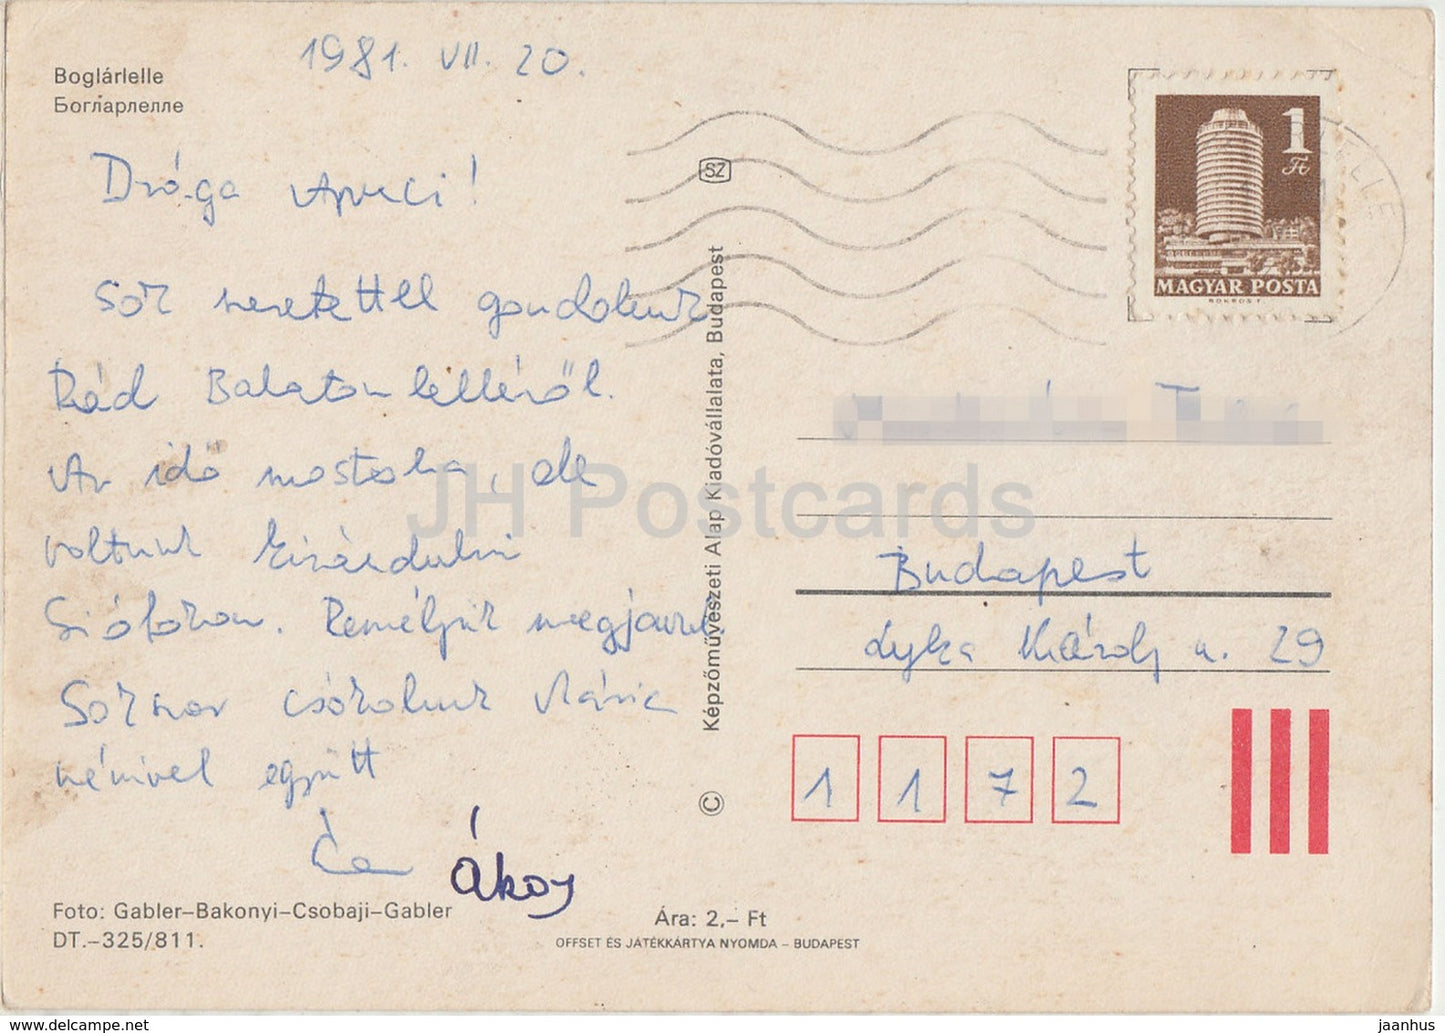 1981. VII. 20.
Boglárlelle
Богларлелле
Drága Apuci!
Sok szeretettel gondolunk
Rád Balatonlelléről.
Az idő mostoha, de
voltunk kirándulni
Siófokon. Reméljük megjavul
Sokszor csókolunk Mária
nénivel együtt
Ákos
Foto: Gabler–Bakonyi–Csobaji–Gabler
DT.–325/811.
SZ
© Képzőművészeti Alap Kiadóvállalata, Budapest
Ára: 2,– Ft
OFFSET ÉS JÁTÉKKÁRTYA NYOMDA – BUDAPEST
1 Ft
MAGYAR POSTA
Budapest
Lyka Károly u. 29
1 1 7 2
JH Postcards
delcampe.net
jaanhus